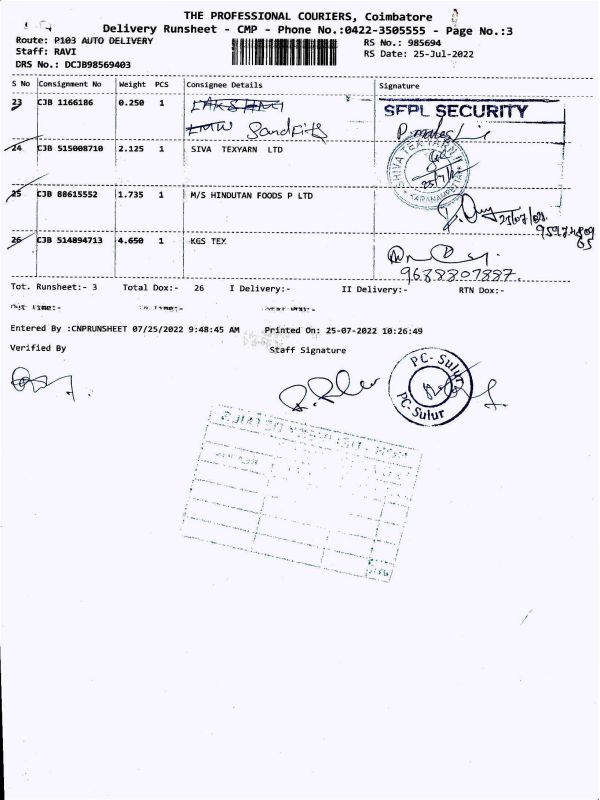 THE PROFESSIONAL COURIERS, Coimbatore
Delivery Runsheet - CMP - Phone No.:0422-3505555 - Page No.:3
Route: P103 AUTO DELIVERY
RS No.: 985694
Staff: RAVI
RS Date: 25-Jul-2022
DRS No.: DCJB98569403
S No Consignment No Weight PCS Consignee Details Signature
23 CJB 1166186 0.250 1
SFPL SECURITY
24 CJB 515008710 2.125 1 SIVA TEXYARN LTD
25 CJB 88615552 1.735 1 M/S HINDUTAN FOODS P LTD
26 CJB 514894713 4.650 1 KGS TEX
9688807887.
Tot. Runsheet:- 3 Total Dox:- 26 I Delivery:- II Delivery:- RTN Dox:-
Entered By :CNPRUNSHEET 07/25/2022 9:48:45 AM Printed On: 25-07-2022 10:26:49
Verified By Staff Signature
PC- Sulur
PC- Sulur